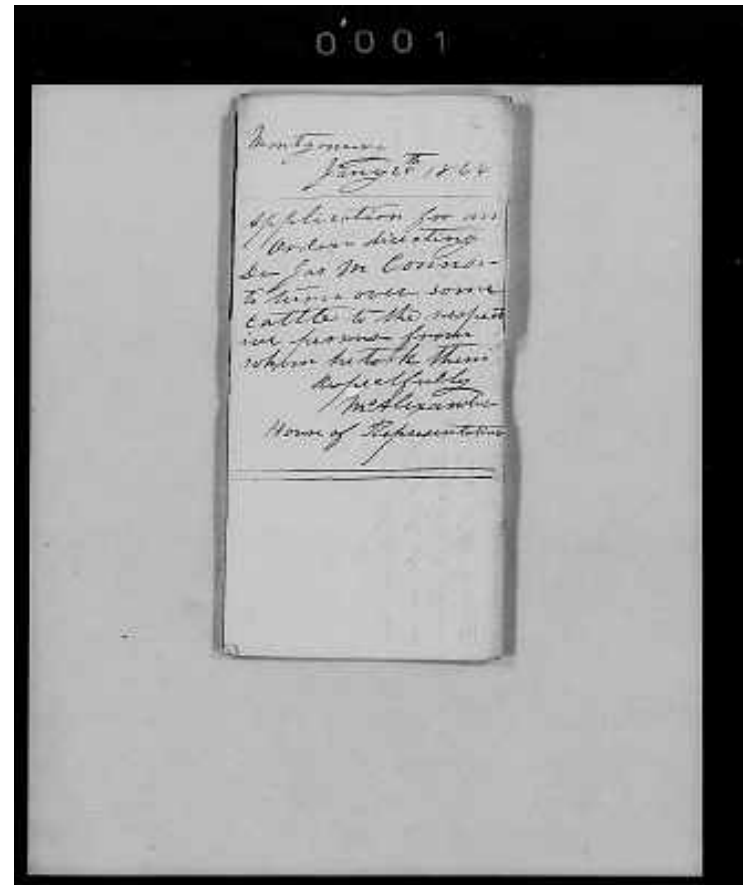 0001
Montgomery
Jany 1868
Application for an
Order directing
Dr Jas M Connor
to turn over some
cattle to the respect
ive persons from
whom he took them
Respectfully
McAlexander
House of Representatives